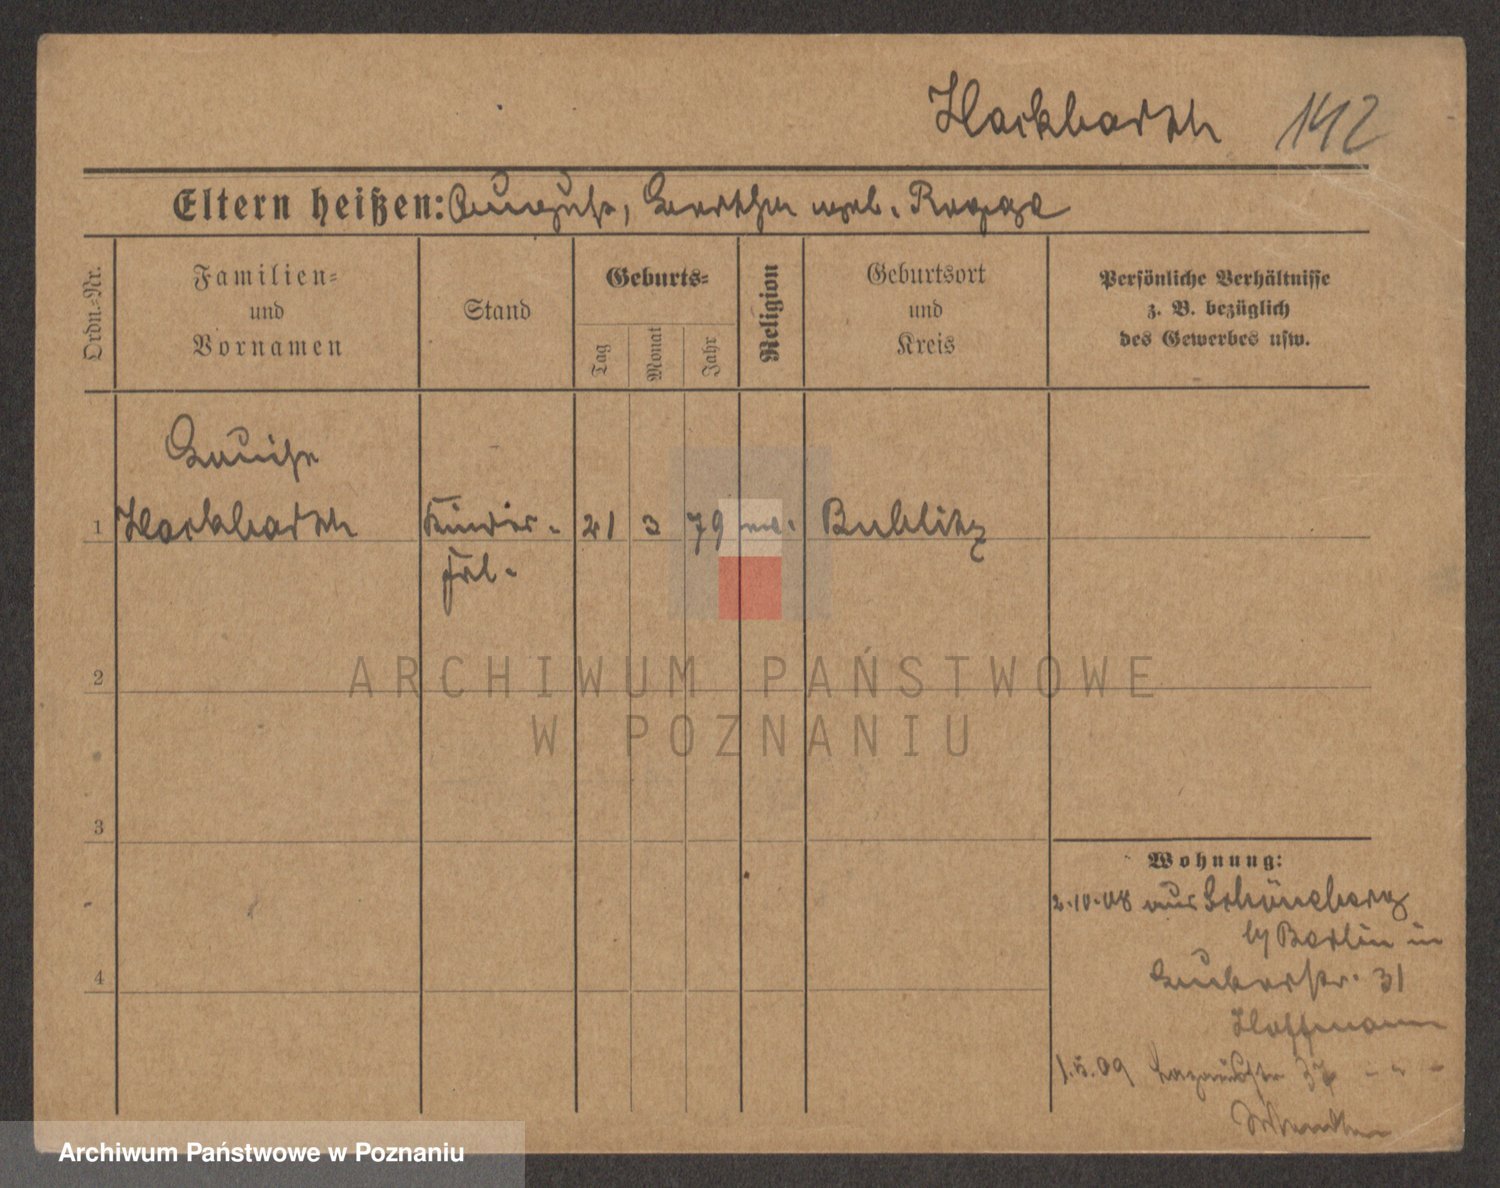 Hackbarth 142
Eltern heißen: August, Bertha geb. Ragge
Ordn.-Nr.
Familien- und Vornamen
Stand
Geburts-
Tag
Monat
Jahr
Religion
Geburtsort und Kreis
Persönliche Verhältnisse
z. B. bezüglich
des Gewerbes usw.
Luise
1 Hackbarth Kinder- 21 3 79 ev. Bublitz
frl.
2
3
4
Wohnung:
2.10.08 aus Schöneberg
b/ Berlin in
31
Hoffmann
1.5.09 37 - " -
ARCHIWUM PAŃSTWOWE
W POZNANIU
Archiwum Państwowe w Poznaniu